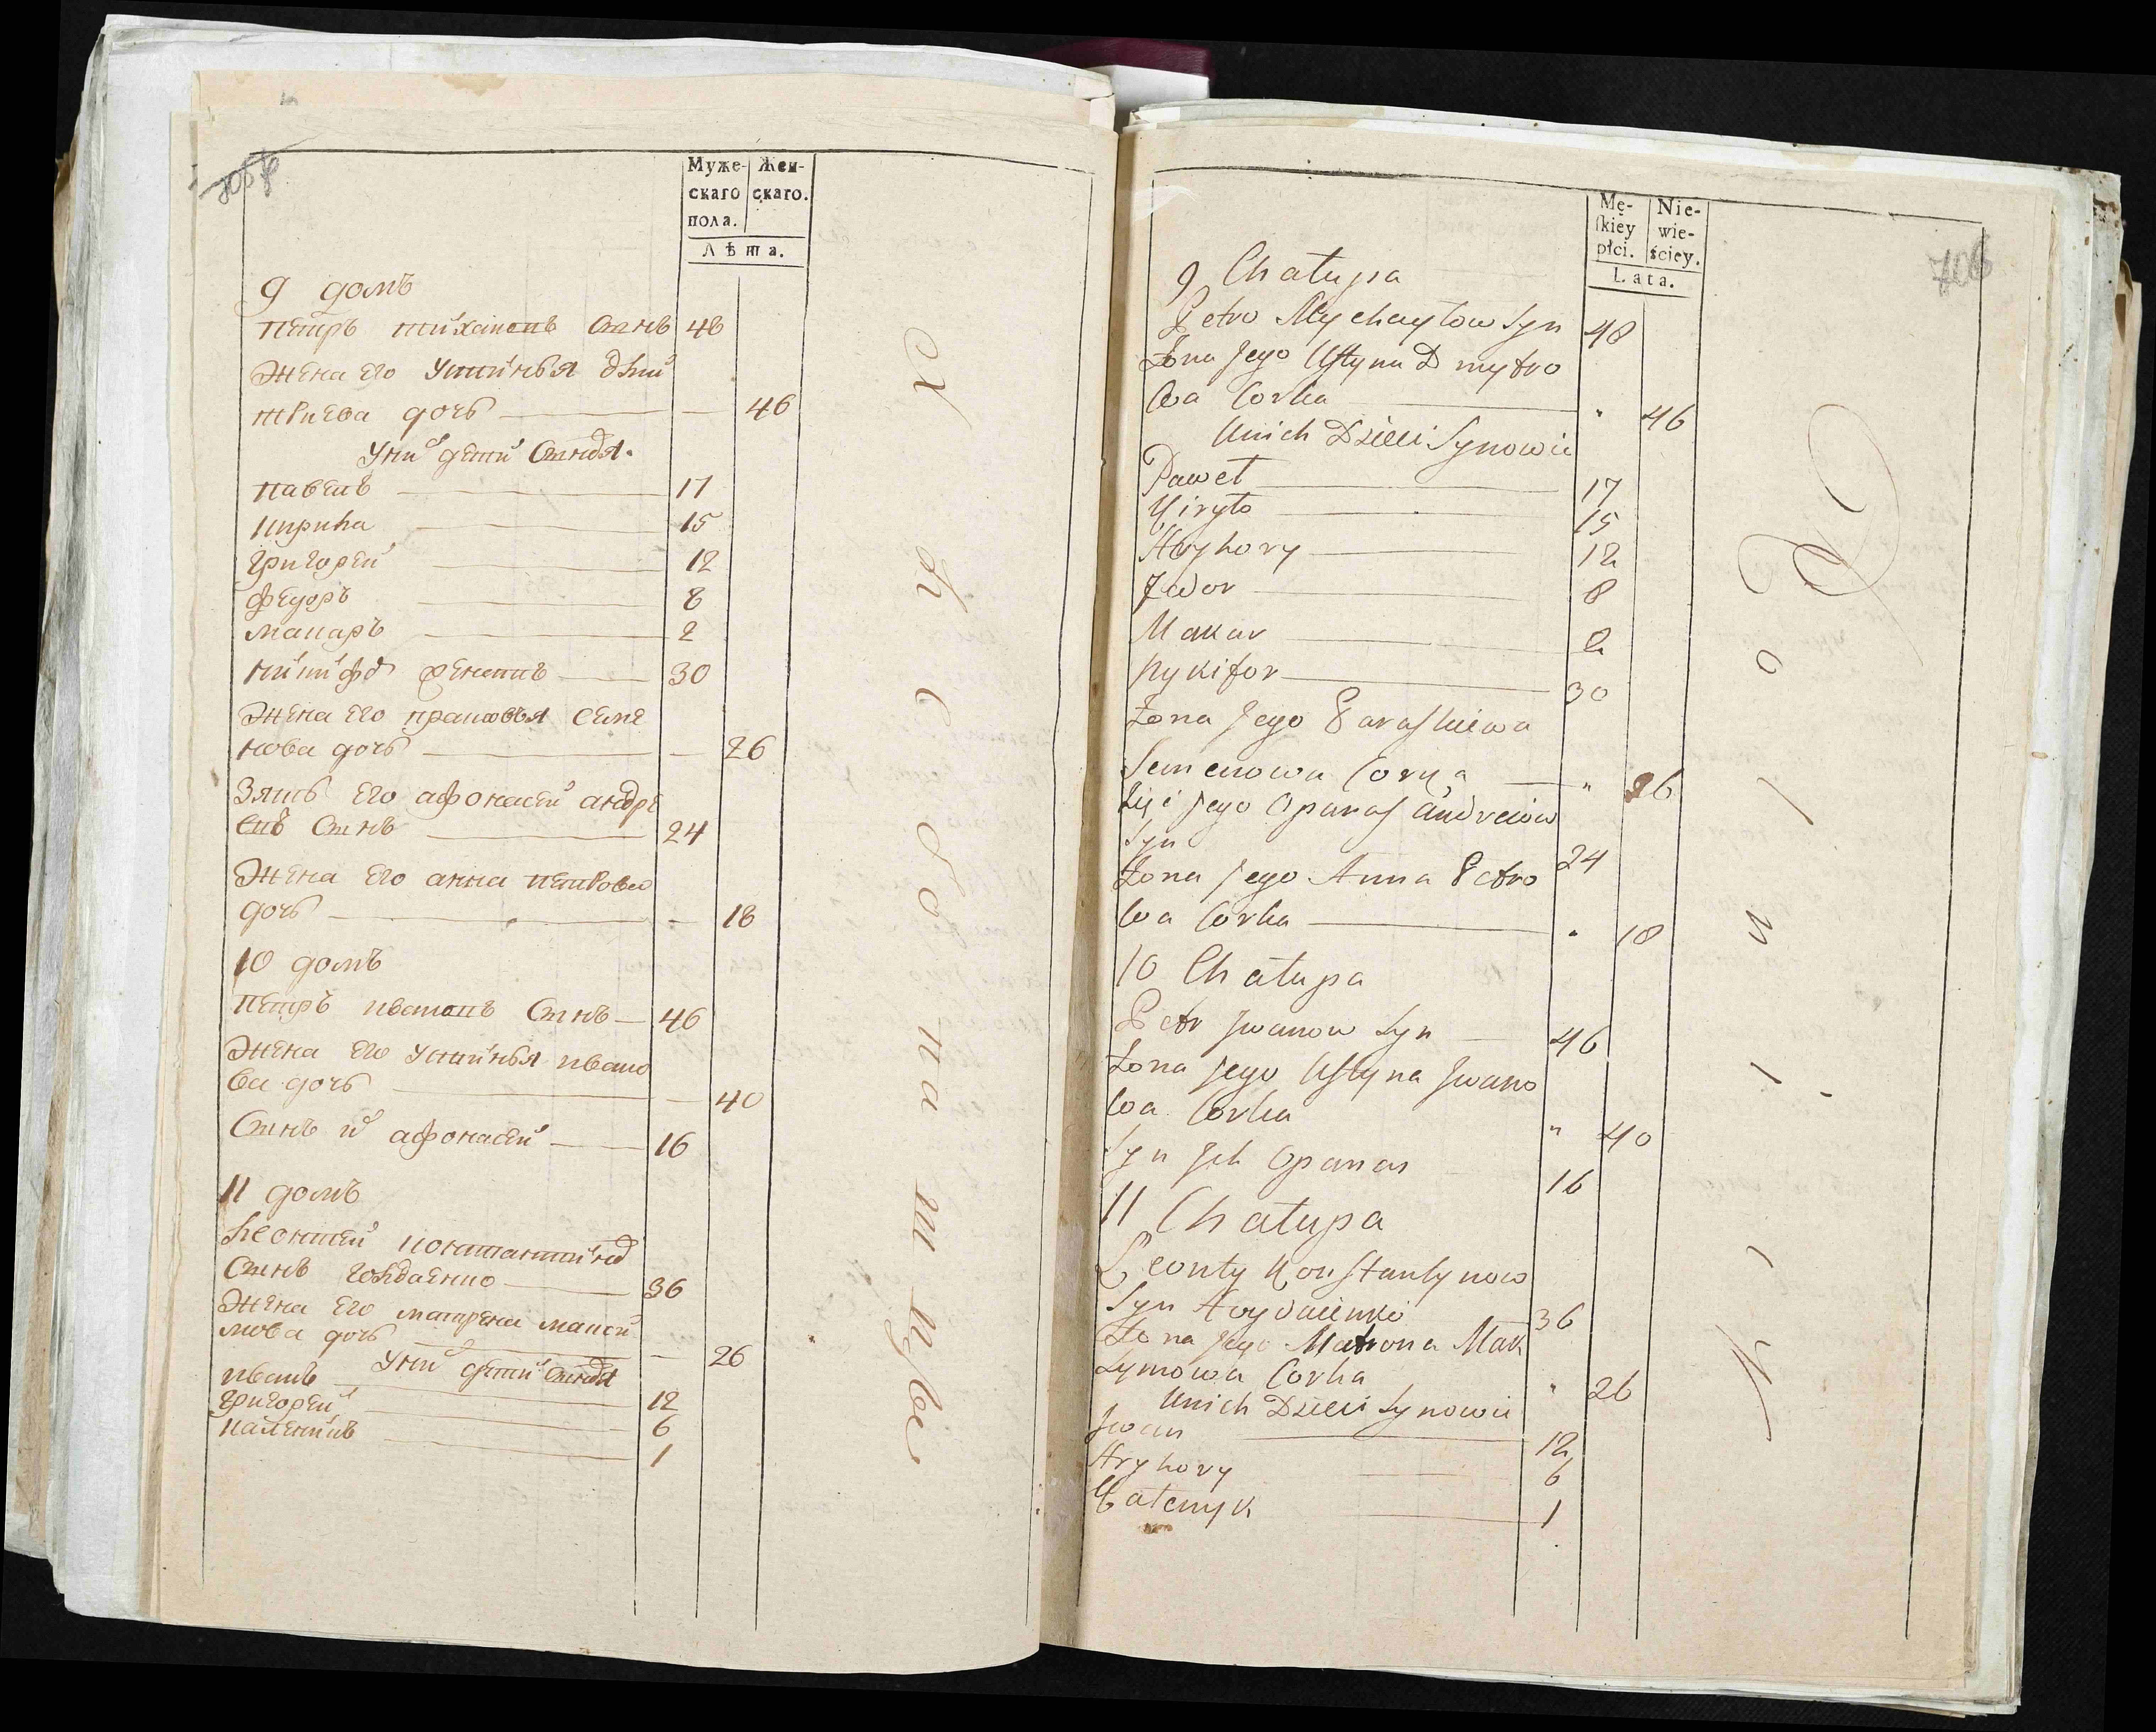 705
Муже-скаго пола. Жен-скаго.
Лѣта.
9 домъ
петръ михаиловъ сынъ 48
жена его устинья дми
триева дочь — 46
у ни детий сыновя
павелъ 17
кирила 15
григорей 12
федоръ 8
макаръ 2
никифо 30
жена его прасковья семе
нова дочь — 26
зять его афонасей андре
евъ сынъ 24
жена его анна петрова
дочь — 18
10 домъ
петръ ивановъ сынъ 46
жена его устинья ивано
ва дочь — 40
сынъ и афонасей 16
11 домъ
леонтей константино
сынъ 36
жена его матрена макси
мова дочь — 26
у ни детий сыновя
иванъ 12
григорей 6
каленикъ 1
706
Mę-skiey płci. Nie-wie-ściey.
Lata.
9 Chałupa
Petro Mychayłow Syn 48
Żona Jego Ustyna Dmytro
wa Corka " 46
Unich Dzieci Synowie
Paweł 17
Kiryło 15
Hryhory 12
Fedor 8
Makar 2
Nykifor 30
Żona Jego Paraskiewa
Semenowa Corka " 26
Zięć Jego Opanas Andreiow
Syn 24
Żona Jego Anna Petro
wa Corka " 18
10 Chałupa
Petr Jwanow Syn 46
Żona Jego Ustyna Jwano
wa Corka " 40
Syn Jch Opanas 16
11 Chałupa
Leonty Konstantynow
Syn 36
Żona Jego Matrona Mak
symowa Corka " 26
Unich Dzieci Synowie
Jwan 12
Hryhory 6
Kałenyk 1